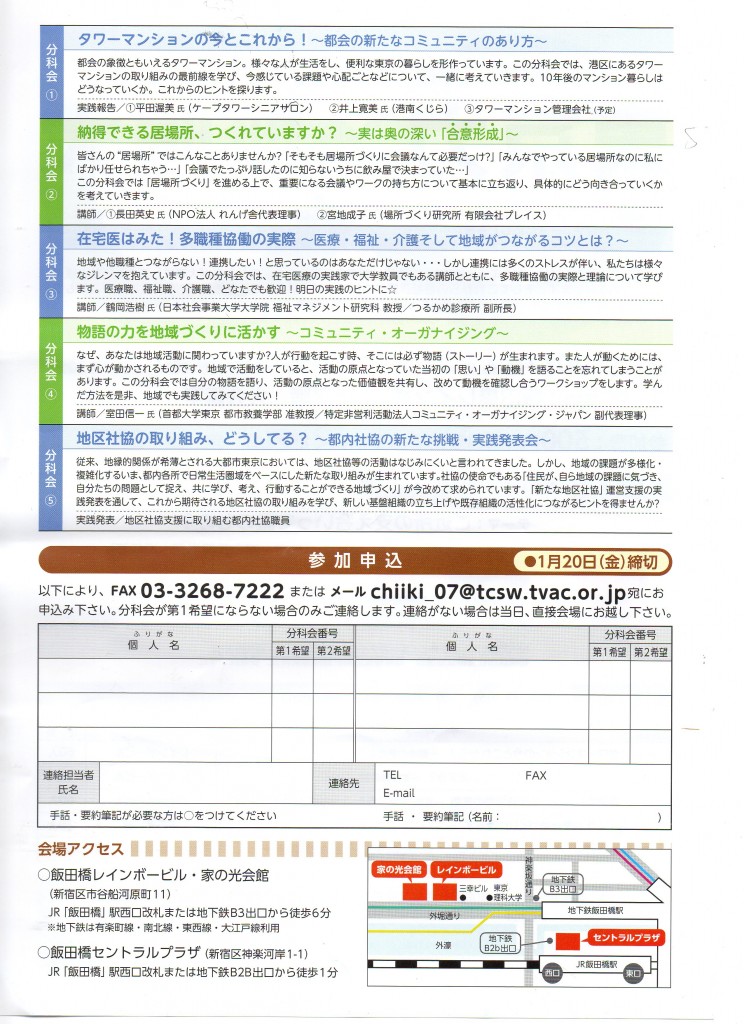 分科会①
タワーマンションの今とこれから！ ～都会の新たなコミュニティのあり方～
都会の象徴ともいえるタワーマンション。様々な人が生活をし、便利な東京の暮らしを形作っています。この分科会では、港区にあるタワー
マンションの取り組みの最前線を学び、今感じている課題や心配ごとなどについて、一緒に考えていきます。10年後のマンション暮らしは
どうなっていくか。これからのヒントを探ります。
実践報告／①平田渥美 氏（ケープタワーシニアサロン） ②井上寛美 氏（港南くじら） ③タワーマンション管理会社（予定）
分科会②
納得できる居場所、つくれていますか？ ～実は奥の深い「合意形成」～
皆さんの“居場所”ではこんなことありませんか？「そもそも居場所づくりに会議なんて必要だっけ？」「みんなでやっている居場所なのに私に
ばかり任せられちゃう…」「会議でたっぷり話したのに知らないうちに飲み屋で決まっていた…」
この分科会では「居場所づくり」を進める上で、重要になる会議やワークの持ち方について基本に立ち返り、具体的にどう向き合っていくか
を考えていきます。
講師／①長田英史 氏（NPO法人 れんげ舎代表理事） ②宮地成子 氏（場所づくり研究所 有限会社プレイス）
分科会③
在宅医はみた！多職種協働の実際 ～医療・福祉・介護そして地域がつながるコツとは？～
地域や他職種とつながらない！連携したい！と思っているのはあなただけじゃない・・・しかし連携には多くのストレスが伴い、私たちは様々
なジレンマを抱えています。この分科会では、在宅医療の実践家で大学教員でもある講師とともに、多職種協働の実際と理論について学び
ます。医療職、福祉職、介護職、どなたでも歓迎！明日の実践のヒントに☆
講師／鶴岡浩樹 氏（日本社会事業大学大学院 福祉マネジメント研究科 教授／つるかめ診療所 副所長）
分科会④
物語の力を地域づくりに活かす ～コミュニティ・オーガナイジング～
なぜ、あなたは地域活動に関わっていますか？人が行動を起こす時、そこには必ず物語（ストーリー）が生まれます。また人が動くためには、
まず心が動かされるものです。地域で活動をしていると、活動の原点となっていた当初の「思い」や「動機」を語ることを忘れてしまうことが
あります。この分科会では自分の物語を語り、活動の原点となった価値観を共有し、改めて動機を確認し合うワークショップをします。学ん
だ方法を是非、地域でも実践してみてください！
講師／室田信一 氏（首都大学東京 都市教養学部 准教授／特定非営利活動法人コミュニティ・オーガナイジング・ジャパン 副代表理事）
分科会⑤
地区社協の取り組み、どうしてる？ ～都内社協の新たな挑戦・実践発表会～
従来、地縁的関係が希薄とされる大都市東京においては、地区社協等の活動はなじみにくいと言われてきました。しかし、地域の課題が多様化・
複雑化するいま、都内各所で日常生活圏域をベースにした新たな取り組みが生まれています。社協の使命でもある「住民が、自ら地域の課題に気づき、
自分たちの問題として捉え、共に学び、考え、行動することができる地域づくり」が今改めて求められています。「新たな地区社協」運営支援の実
践発表を通して、これから期待される地区社協の取り組みを学び、新しい基盤組織の立ち上げや既存組織の活性化につながるヒントを得ませんか？
実践発表／地区社協支援に取り組む都内社協職員
参加申込 ●1月20日（金）締切
以下により、FAX 03-3268-7222 または メール chiiki_07@tcsw.tvac.or.jp宛にお
申込み下さい。分科会が第1希望にならない場合のみご連絡します。連絡がない場合は当日、直接会場にお越し下さい。
ふりがな 分科会番号 ふりがな 分科会番号
個人名 第1希望 第2希望 個人名 第1希望 第2希望
連絡担当者
氏名
連絡先
TEL FAX
E-mail
手話・要約筆記が必要な方は○をつけてください 手話 ・ 要約筆記（名前： ）
会場アクセス
○飯田橋レインボービル・家の光会館
（新宿区市谷船河原町11）
JR「飯田橋」駅西口改札または地下鉄B3出口から徒歩6分
※地下鉄は有楽町線・南北線・東西線・大江戸線利用
○飯田橋セントラルプラザ（新宿区神楽河岸1-1）
JR「飯田橋」駅西口改札または地下鉄B2B出口から徒歩1分
家の光会館
レインボービル
三幸ビル
東京理科大学
神楽坂通り
地下鉄B3出口
地下鉄飯田橋駅
外堀通り
外濠
地下鉄B2b出口
セントラルプラザ
JR飯田橋駅
西口
東口